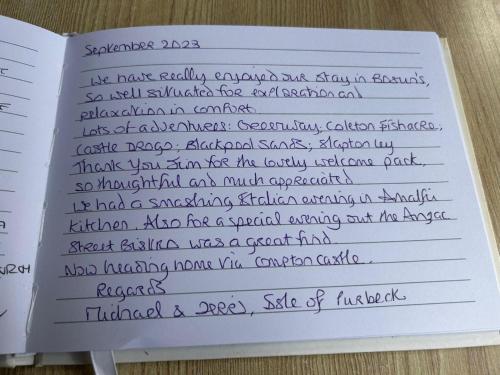 September 2023
We have really enjoyed our stay in Bosun's,
so well situated for exploration and
relaxation in comfort.
Lots of adventures: Greenway; Coleton Fishacre,
Castle Drogo; Blackpool Sands; Slapton Ley
Thank you Jim for the lovely welcome pack,
so thoughtful and much appreciated
We had a smashing Italian evening in Amalfi
Kitchen. Also for a special evening out the Anzac
Street Bistro was a great find.
Now heading home via Compton Castle.
Regards
Michael & Isle of Purbeck